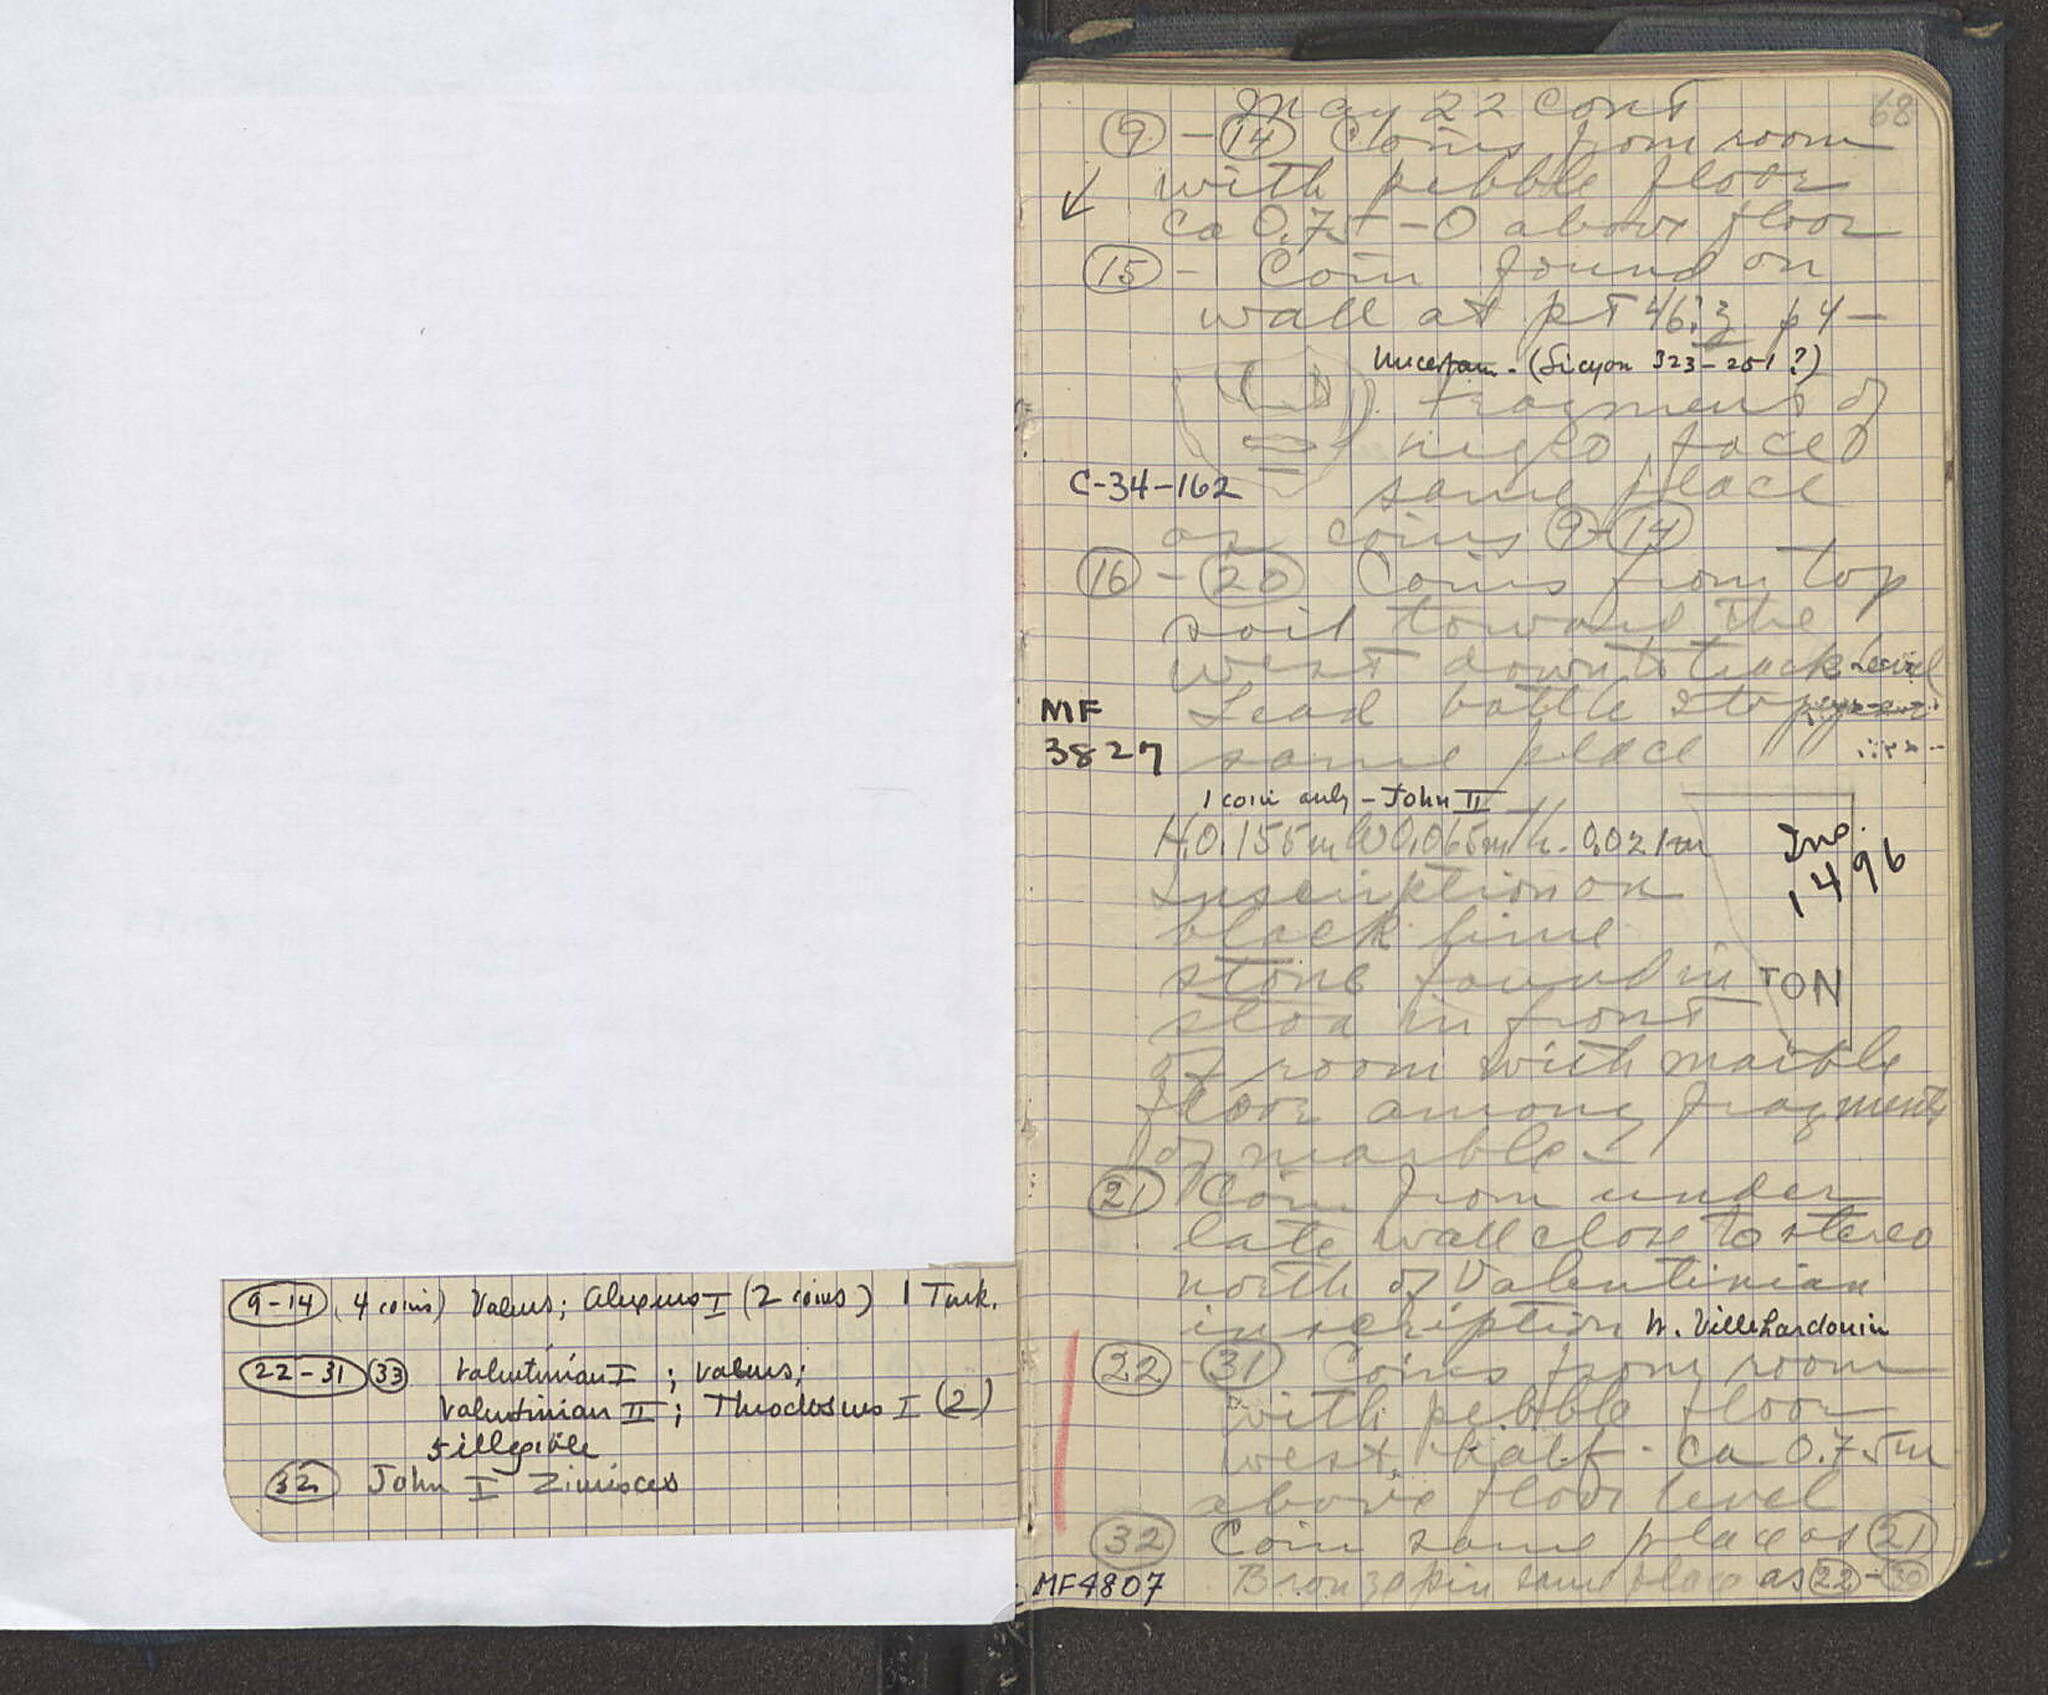 9-14 (4 coins) Valens; Alexius I (2 coins) 1 Turk.
22-31 33 Valentinian I ; Valens;
Valentinian II ; Theodosius I (2)
5 illegible
32 John I Zimisces
68
May 22 Cont
9 - 14 Coins from room
with pebble floor
ca 0.75 - 0 above floor
15 - Coin found on
wall at pt 46:3 p 4 -
Uncertain - (Sicyon 323-251 ?)
fragment of
negro face
C-34-162
same place
as coins 9-14
16 - 20 Coins from top
soil toward the
west down to track level
MF
3827
Lead bottle stopper
same place
1 coin only - John II
H.0.155m W0.065m th. 0.021m
Ins.
1496
Inscription on
black lime
stone found in
TON
stoa in front
of room with marble
floor among fragments
of marble -
21 Coin from under
late wall close to stereo
north of Valentinian
inscription W. Villehardouin
22 - 31 Coins from room
with pebble floor
west half - ca 0.75m
above floor level
32 Coin same place as 21
MF4807 Bronze pin same place as 22-30